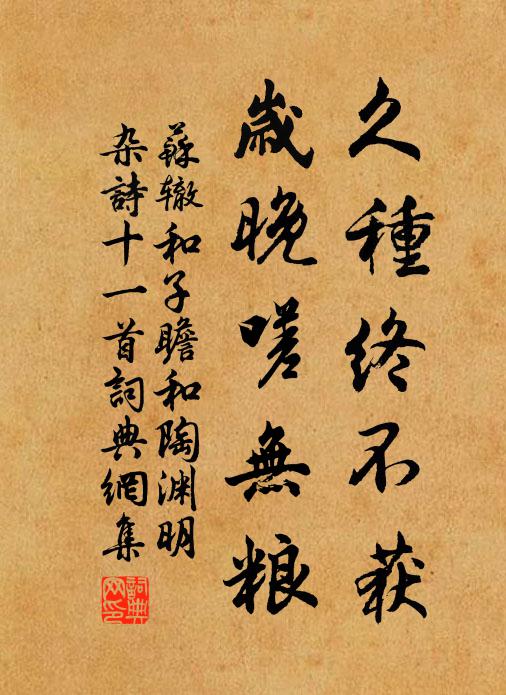 久種終不获
嵗晚嗟無粮
蘇辙和子瞻和陶渊明
杂詩十一首詞典網集
詞典网印